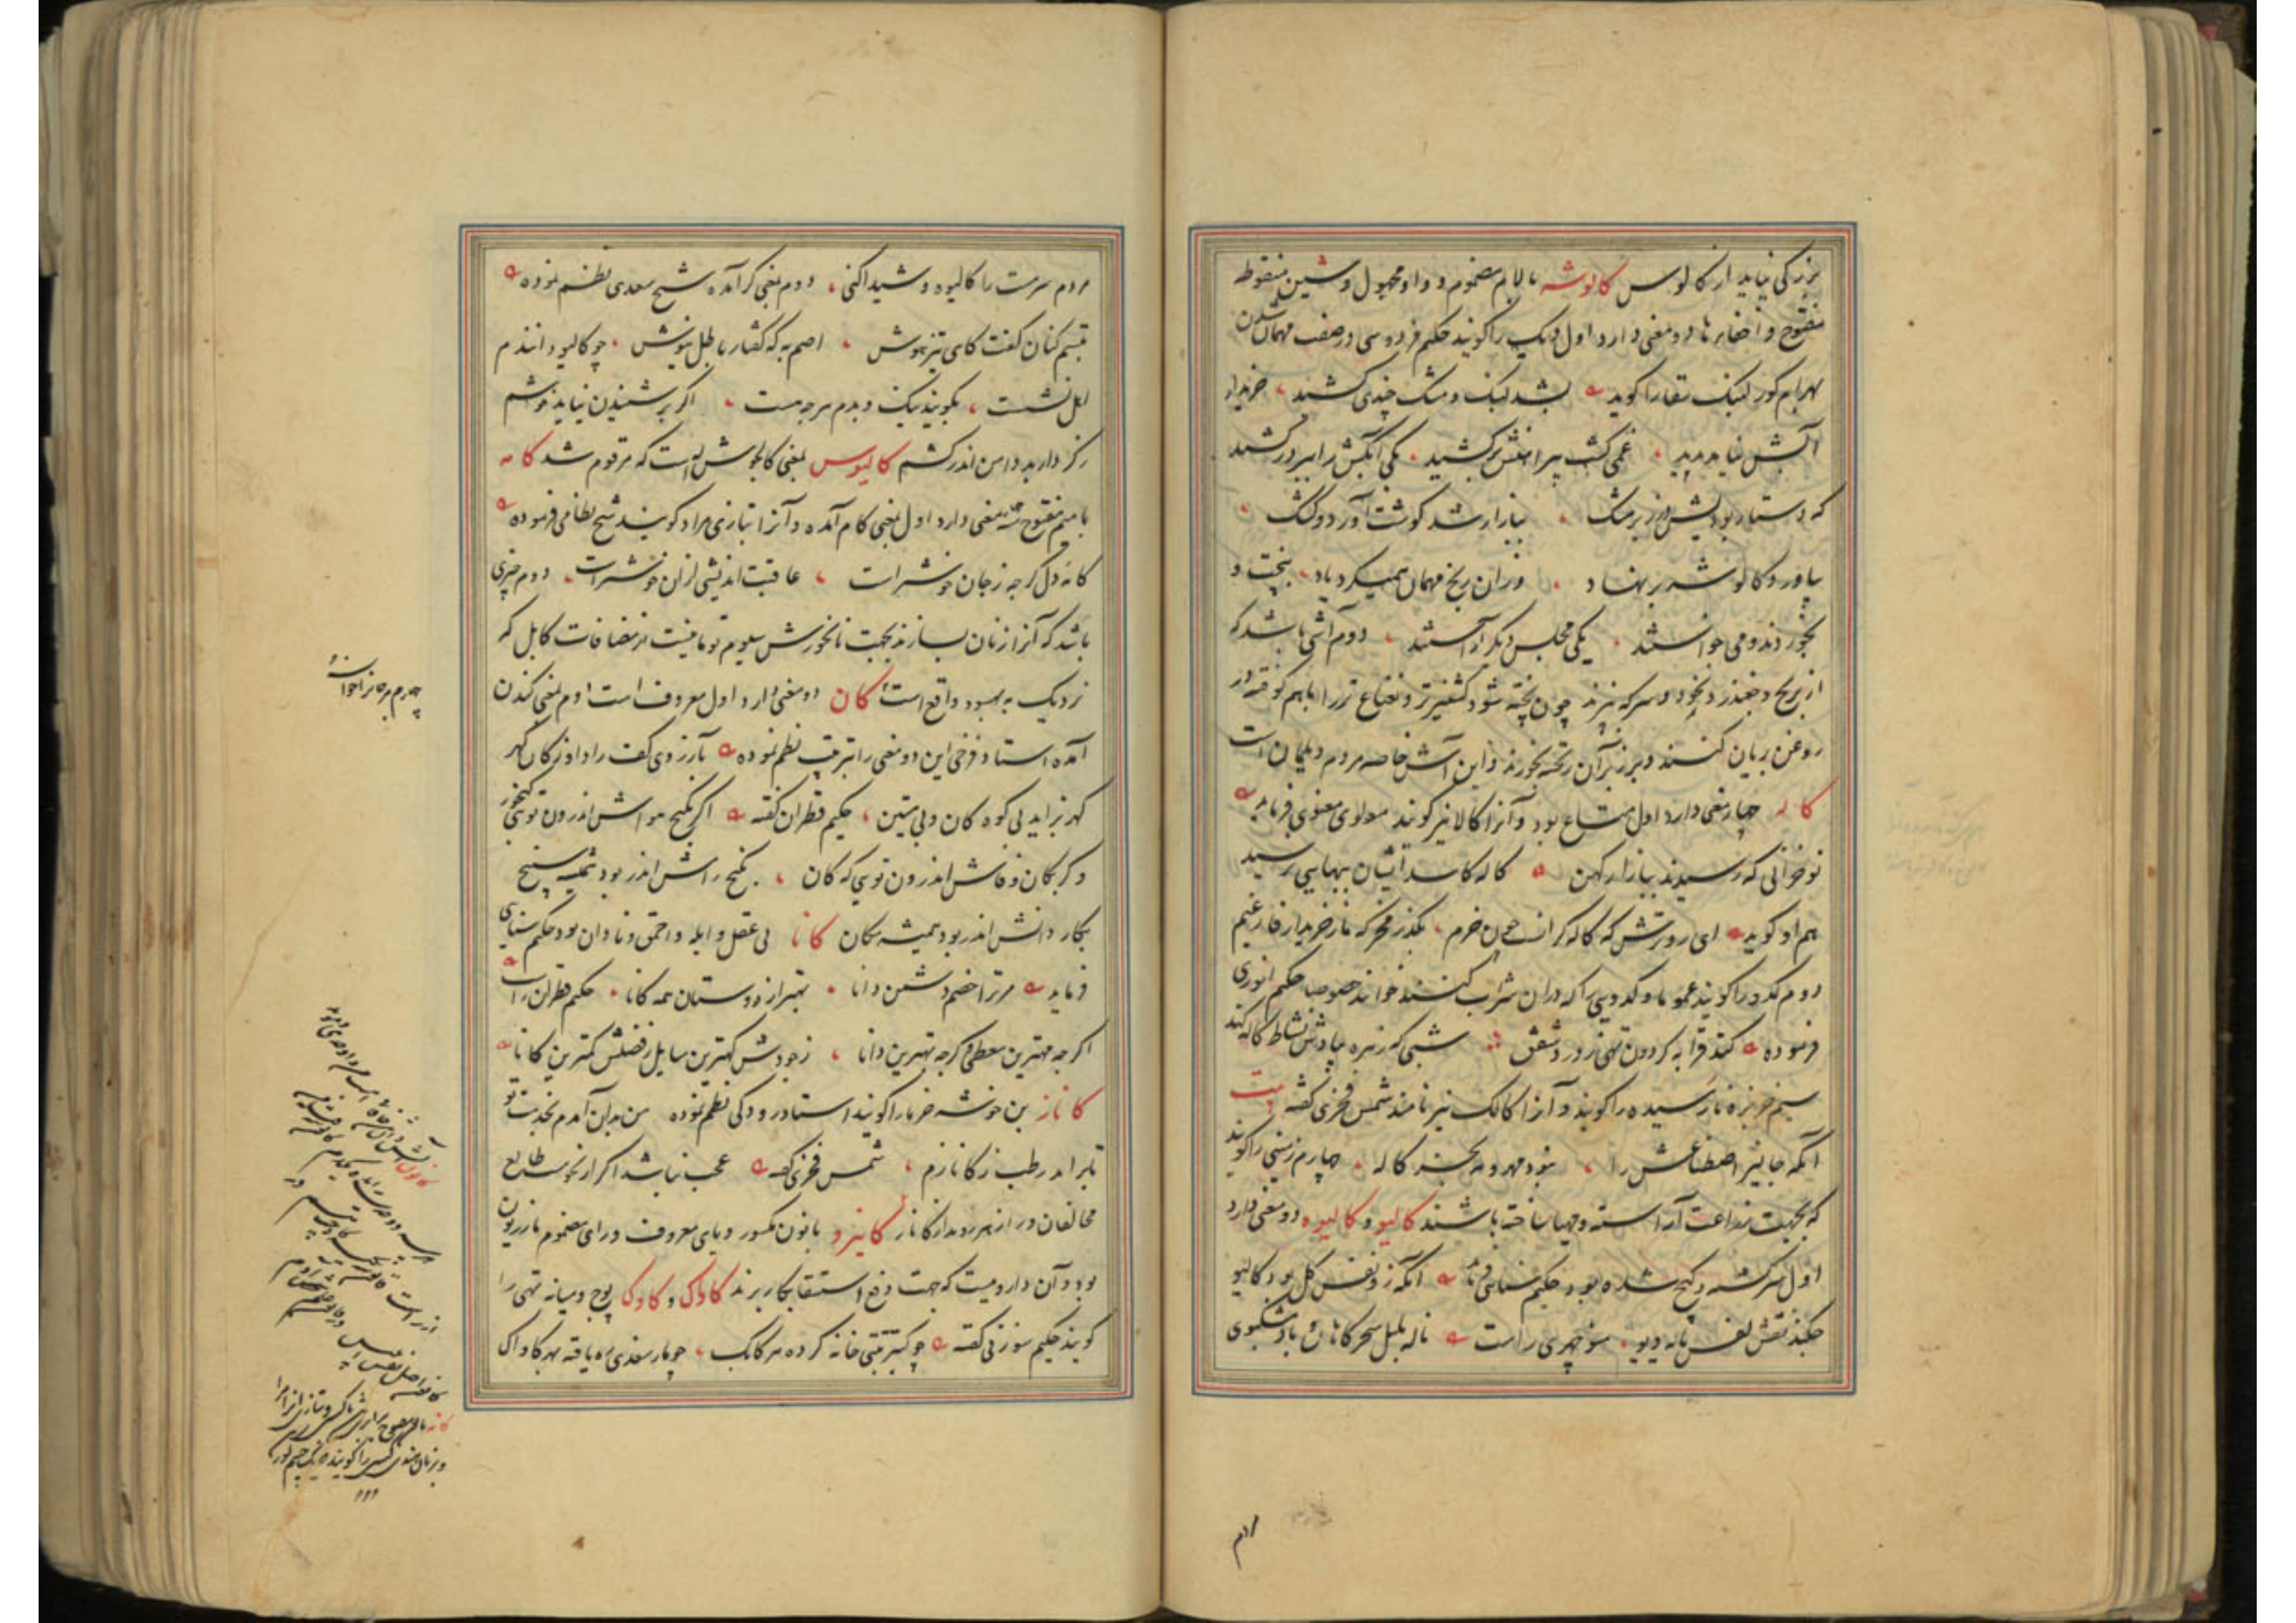 بزرکی نیاید از کالوس کالوشه با لام مضموم و واو مجهول و شین منقوط
مفتوح و اخفای ها دو معنی دارد اول دیک را کویند حکیم فردوسی در صفت مهمان شدن
بهرام کور لنبک سقا را کوید بشد لنبک و مشک چندی کشید خریدار
آبش نیامد پدید غمی کشت پیراهنش برکشید یکی آبکش را ببر درکشید
که دستار بودیش در زیر مشک ببازار شد کوشت آورد و کشک
بیاورد و کالوشه بر نهاد وزان رنج مهمان همیکرد یاد بپخت و
بخوردند و می خواستند یکی مجلس دیکر آراستند دوم آشی باشد که
از برنج و چغندر و نخود و سرکه پزند چون پخته شود کشنیز تر و نعناع تر را باهم کوفته در
روغن بریان کنند و بر زبر آن ریخته بخورند و این آش خاصه مردم دیلمان است
کاله چهار معنی دارد اول متاع بود و آنرا کالا نیز کویند مولوی معنوی فرماید
نوخرانی که رسیدند ببازار کهن کاله کاسد ایشان ببهایی برسید
هم او کوید ای رو ترش که کاله کرانست چون خرم بکذر مخر که ما ز خریدار فارغیم
دوم کدو را کویند عموما و کدویی را که دران شراب کنند خوانند خصوصا حکیم انوری
فرموده کند قرابه کردون تهی ز درد شفق شبی که زهره بیادش نشاط کاله کند
سیم خربزه نارسیده را کویند و آنرا کالک نیز نامند شمس فخری کفته بیت
آنکه جالیز اصطناعش را نبود مهر و مه بجز کاله چهارم زمینی را کویند
که بجهت زراعت آراسته و مهیا ساخته باشند کالیو و کالیوه دو معنی دارد
اول سرکشته و کیج شده بود حکیم سنائی فرماید آنکه زو نفس کل بود کالیو
چکند نقش نفس نامه دیو منوچهری راست ناله بلبل سحرکاهان و باد مشکبوی
مردم
مردم سرمست را کالیوه و شیدا کنی دوم بمعنی کر آمده شیخ سعدی نظم نموده
تبسم کنان کفت کای تیزهوش اصم به که کفتار باطل نیوش چو کالیوه دانندم
اهل نشست بکویند نیک و بدم هرچه هست اکر بر شنیدن نیاید خوشم
ز کردار بد دامن اندر کشم کالیوس بمعنی کالجوش است که مرقوم شد کامه
با میم مفتوح سه معنی دارد اول بمعنی کام آمده و آنرا بتازی مراد کویند شیخ نظامی فرموده
کامه دل کرچه ز جان خوشتراست عاقبت اندیشی ازان خوشتراست دوم چیزی
باشد که آنرا از نان بسازند بجهت نانخورش سیوم تومانیست از مضافات کابل که
نزدیک به بهسود واقع است کان دو معنی دارد اول معروف است دوم بمعنی کندن
آمده استاد فرخی این دو معنی را بترتیب نظم نموده بآرزوی کف راد او ز کان کهر
کهر بزاید بی کوه کان و بی میتین حکیم قطران کفته اکر بکنج هواش اندرون تویی کنجور
و کر بکان وفاش اندرون تویی که کان بکنج رامش اندر بود همیشه سنج
بکار دانش اندر بود همیشه کان کانا بی عقل و ابله و احمق و نادان بود حکیم سنایی
فرماید مر ترا خصم و دشمن دانا بهتر از دوستان همه کانا حکیم قطران راست
اکرچه مهترین معطی و کرچه بهترین دانا ز جودش کهترین سایل ز فضلش کمترین کانا
کاناز بن خوشه خرما را کویند استاد رودکی نظم نموده من بدان آمدم بخدمت تو
تا بر آید رطب ز کانازم شمس فخری کفته عجب نباشد اکر از نحوست طالع
مخالفان ورا زهر روید از کاناز کانیرو با نون مکسور و یای معروف و رای مضموم مازریون
بود و آن داروییست که جهت دفع استسقا بکار برند کاواک و کاوک پوچ و میانه تهی را
کویند حکیم سوزنی کفته خانه کرده هر کابک چو مار سغدی ره یافته بهر کاواک